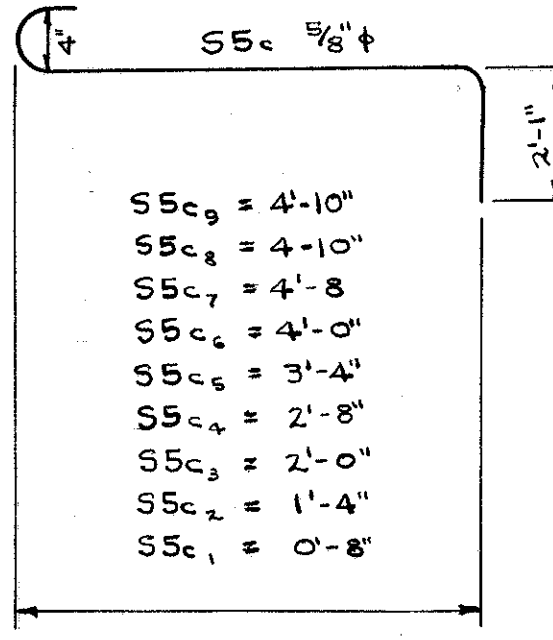 4"
S5c 5/8" ϕ
2'-1"
S5c₉ = 4'-10"
S5c₈ = 4-10"
S5c₇ = 4'-8
S5c₆ = 4'-0"
S5c₅ = 3'-4"
S5c₄ = 2'-8"
S5c₃ = 2'-0"
S5c₂ = 1'-4"
S5c₁ = 0'-8"